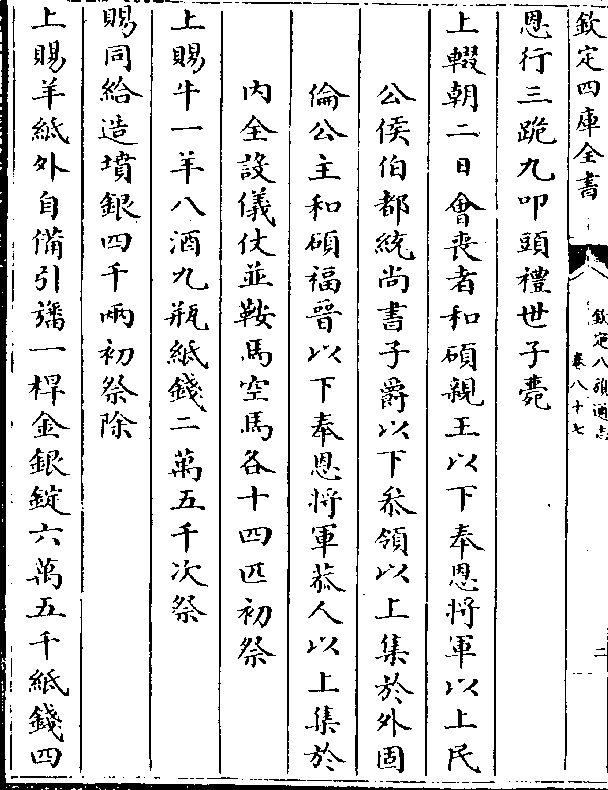 欽定四庫全書
欽定八旗通志
卷八十七
二
恩行三跪九叩頭禮世子薨
上輟朝二日會喪者和碩親王以下奉恩將軍以上民
公侯伯都統尚書子爵以下叅領以上集於外固
倫公主和碩福晉以下奉恩將軍恭人以上集於
內全設儀仗並鞍馬空馬各十四匹初祭
上賜牛一羊八酒九瓶紙錢二萬五千次祭
賜同給造墳銀四千兩初祭除
上賜羊紙外自備引旛一桿金銀錠六萬五千紙錢四